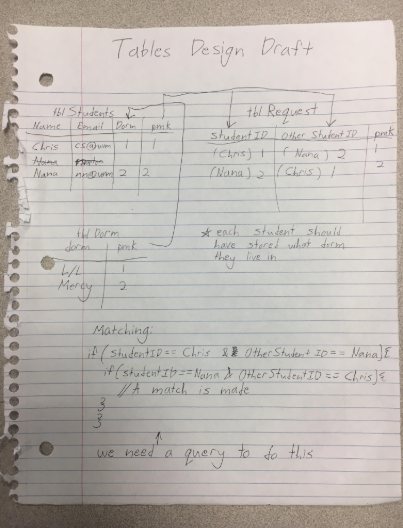 Tables Design Draft
tbl Students
Name Email Dorm pmk
Chris cs@wm 1 1
Nana nn@wm 2 2
tbl Request
StudentID Other StudentID pmk
(Chris) 1 (Nana) 2 1
(Nana) 2 (Chris) 1 2
tbl Dorm
dorm pmk
L/L 1
Mercy 2
* each student should
have stored what dorm
they live in
Matching:
if (StudentID == Chris && OtherStudent ID == Nana) {
if (studentID == Nana & OtherStudentID == Chris) {
// A match is made
}
}
↑
we need a query to do this